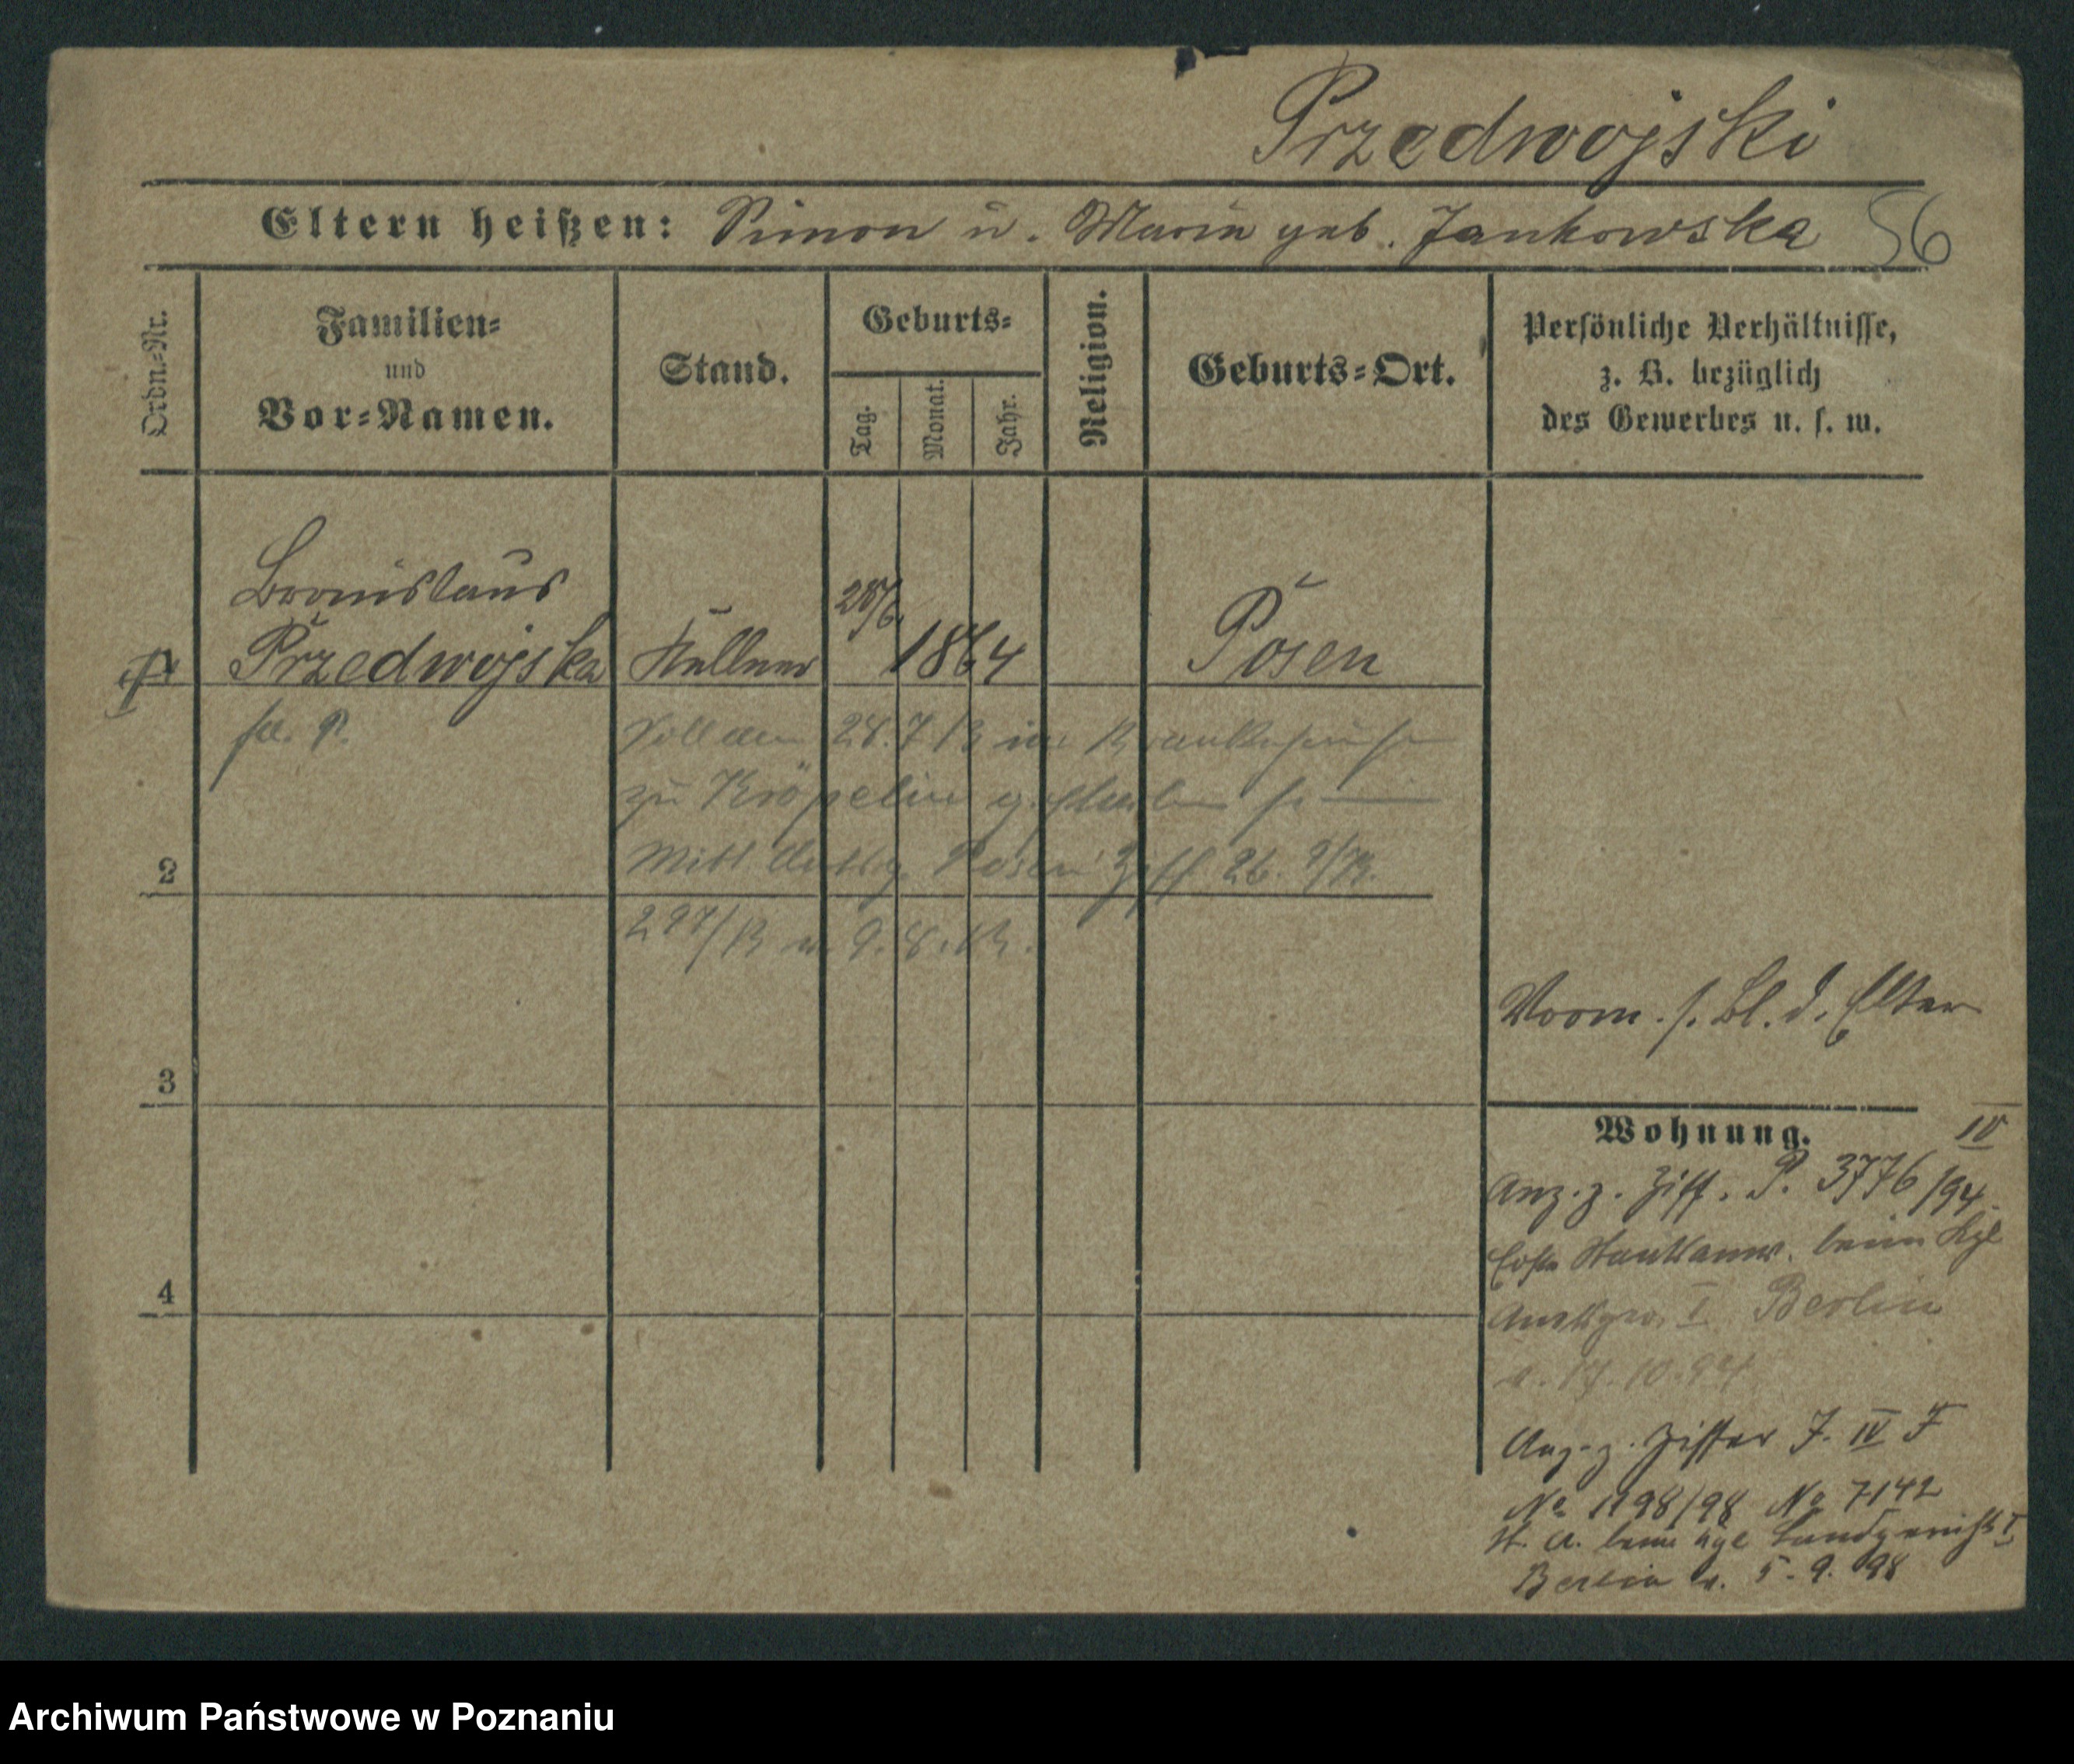 Przedwojski
Eltern heißen: Simon u. Maria geb. Jankowska 56
Ordn.=Nr.
Familien=
und
Vor=Namen.
Stand.
Geburts=
Tag.
Monat.
Jahr.
Religion.
Geburts=Ort.
Persönliche Verhältnisse,
z. B. bezüglich
des Gewerbes u. s. w.
Bronislaus
Przedwojski Kellner 28/6. 1864 Posen
Soll am 28. 7. 13 im Krankenhause
zu Kröpelin gestorben sein
Posen Ziff. 26.
2
287/13 v. 9. 8. 13.
3
4
Vorm. s. Bl. d. Elter
Wohnung. IV
Anz. z. Ziff. P. 3776/94.
Erste Staatsanw. beim Kgl
I Berlin
v. 10. 94
Anz. z. Ziffer J. IV F
No 1198/98 No 7142
St. A. beim Kgl Landgericht I
Berlin v. 5. 9. 98
Archiwum Państwowe w Poznaniu